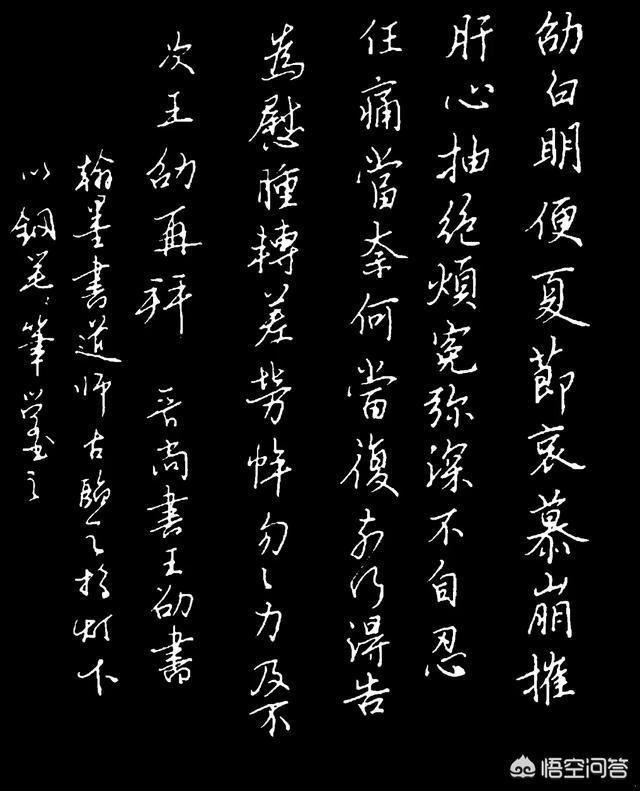 劭白明便夏節哀慕崩摧
肝心抽絕煩冤弥深不自忍
任痛當柰何當復奈何得告
為慰腫轉差勞悴勿〻力及不
次王劭再拜 晋尚書王劭書
翰墨書道师古臨之於灯下
以鋼筆之
悟空问答